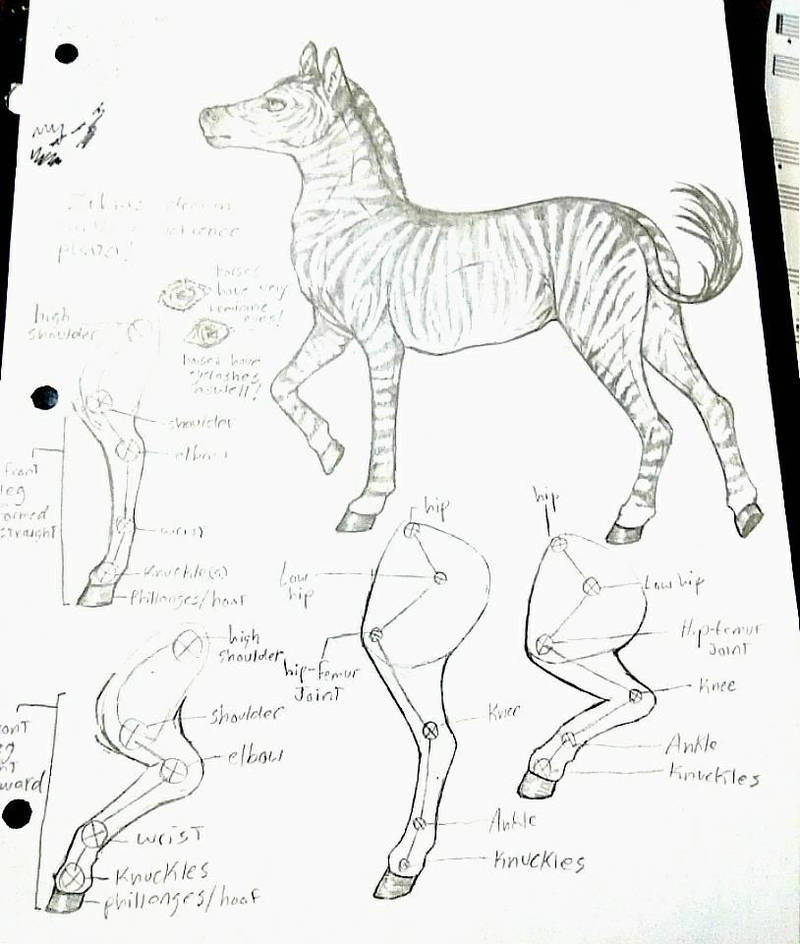 Zebras drawn
science
horses
have very
feminine
eyes!
horses have
eyelashes
as well!
high
shoulder
shoulder
elbow
front
leg
straight
wrist
Knuckle(s)
Phillonges/hoof
high
shoulder
shoulder
elbow
wrist
Knuckles
phillonges/hoof
hip
Low
hip
hip-femur
Joint
Knee
Ankle
Knuckles
hip
Low hip
Hip-femur
Joint
Knee
Ankle
Knuckles